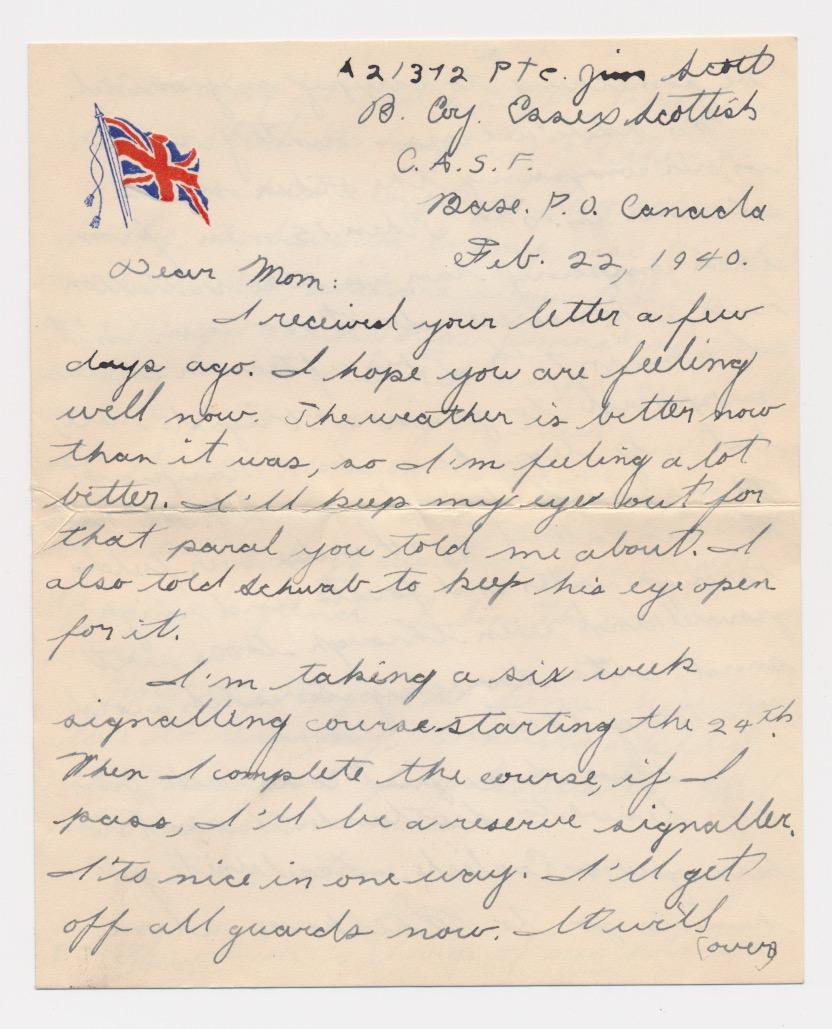 A21372 Pte. Jim Scott
B. Coy. Essex Scottish
C.A.S.F.
Base. P.O. Canada
Feb. 22, 1940.
Dear Mom:
I received your letter a few
days ago. I hope you are feeling
well now. The weather is better now
than it was, so I'm feeling a lot
better. I'll keep my eye out for
that paral you told me about. I
also told Schwab to keep his eye open
for it.
I'm taking a six week
signalling course starting the 24th.
When I complete the course, if I
pass, I'll be a reserve signaller.
I'ts nice in one way. I'll get
off all guards now. It will
(over)